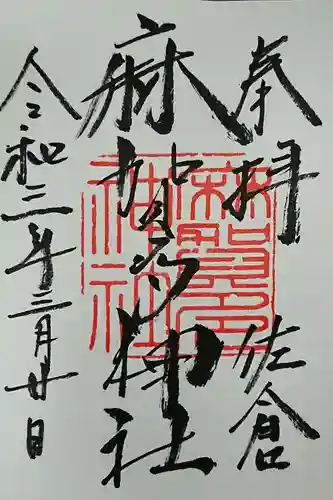 奉拝
佐倉
麻賀多神社
麻賀多
神社
令和三年三月廿日